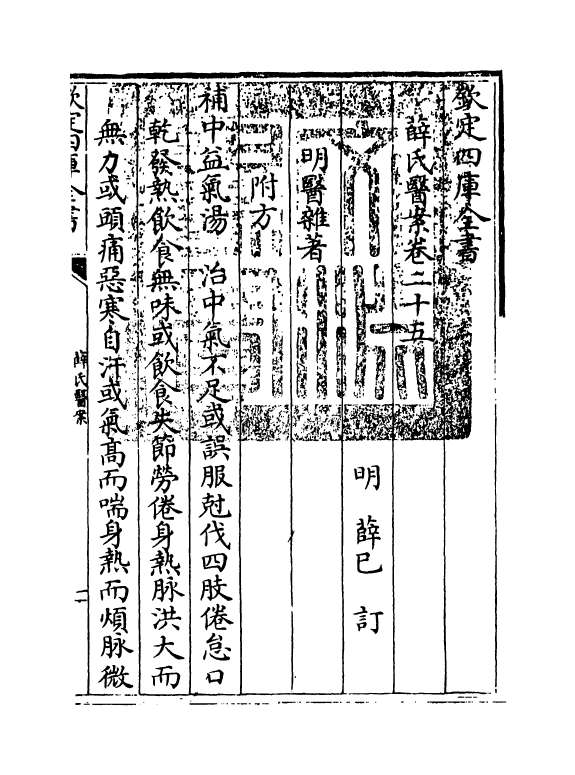 欽定四庫全書
薛氏醫案卷二十五
明 薛己 訂
明醫雜著
附方
補中益氣湯 治中氣不足或誤服尅伐四肢倦怠口
乾發熱飲食無味或飲食失節勞倦身熱脉洪大而
無力或頭痛惡寒自汗或氣高而喘身熱而煩脉微
欽定四庫全書
薛氏醫案